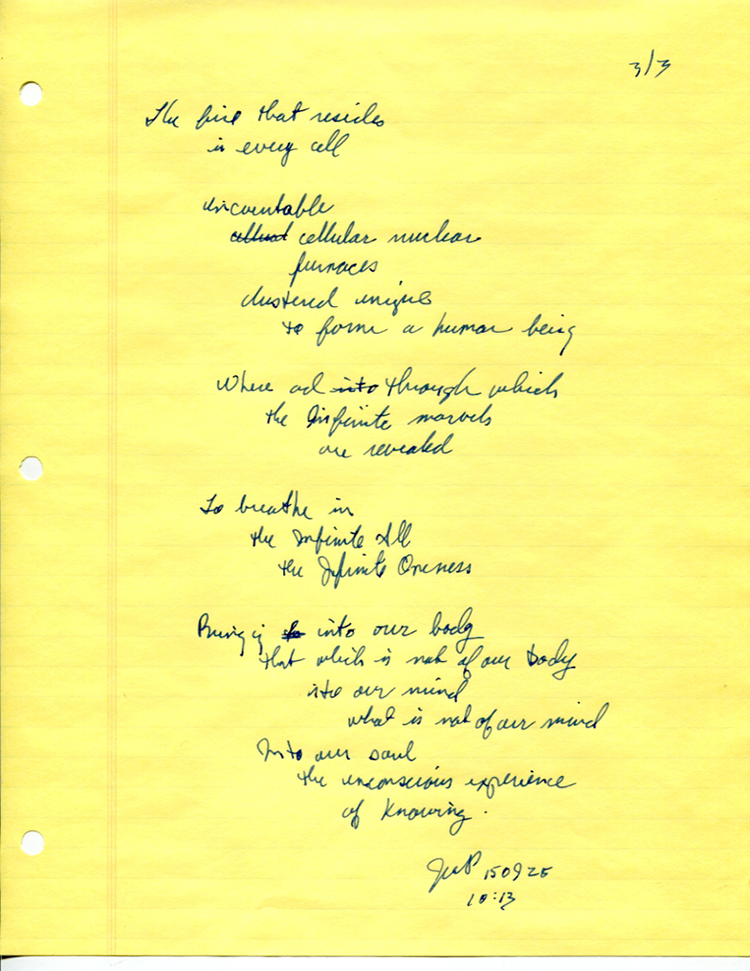 3/3
The fire that resides
in every cell
uncountable
cellular nuclear
furnaces
clustered unique
to form a human being
Where and into through which
the Infinite marvels
are revealed
To breathe in
the Infinite All
the Infinite Oneness
Bringing into our body
that which is not of our body
into our mind
what is not of our mind
Into our soul
the unconscious experience
of Knowing.
150925
10:13